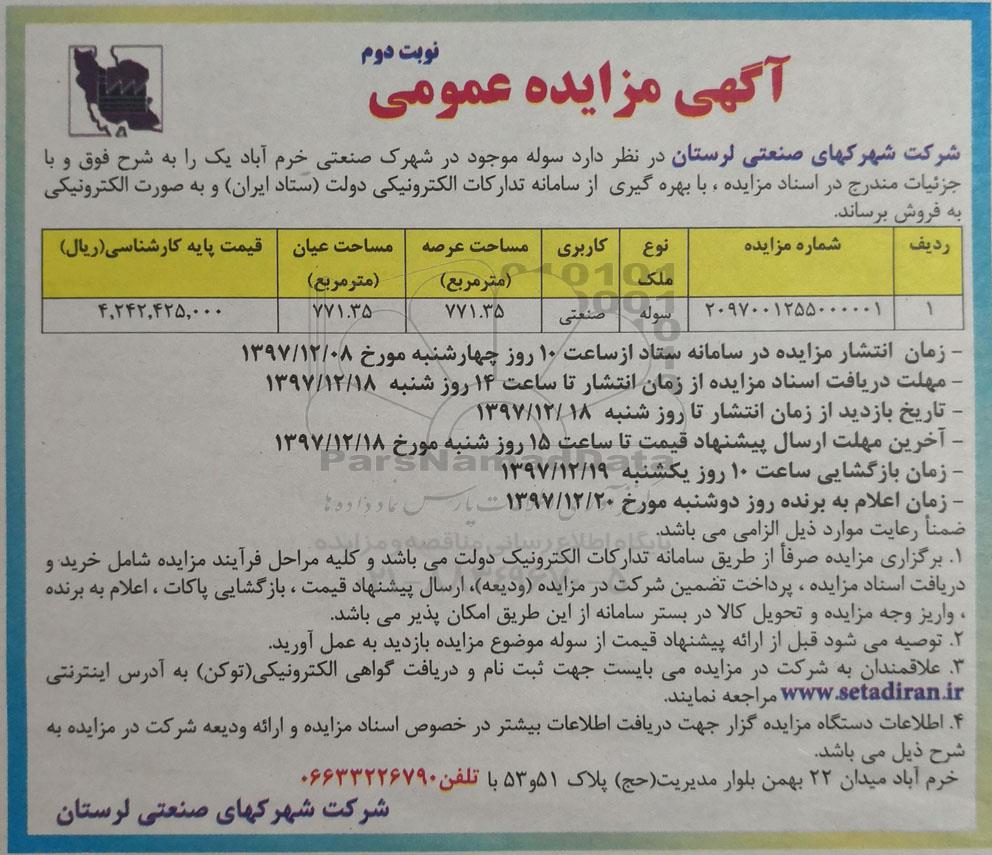 نوبت دوم
آگهی مزایده عمومی
شرکت شهرکهای صنعتی لرستان در نظر دارد سوله موجود در شهرک صنعتی خرم آباد یک را به شرح فوق و با
جزئیات مندرج در اسناد مزایده ، با بهره گیری از سامانه تدارکات الکترونیکی دولت (ستاد ایران) و به صورت الکترونیکی
به فروش برساند.
ردیف شماره مزایده نوع ملک کاربری مساحت عرصه (مترمربع) مساحت عیان (مترمربع) قیمت پایه کارشناسی(ریال)
۱ ۲۰۹۷۰۰۱۲۵۵۰۰۰۰۰۱ سوله صنعتی ۷۷۱.۳۵ ۷۷۱.۳۵ ۴,۲۴۲,۴۲۵,۰۰۰
- زمان انتشار مزایده در سامانه ستاد ازساعت ۱۰ روز چهارشنبه مورخ ۱۳۹۷/۱۲/۰۸
- مهلت دریافت اسناد مزایده از زمان انتشار تا ساعت ۱۴ روز شنبه ۱۳۹۷/۱۲/۱۸
- تاریخ بازدید از زمان انتشار تا روز شنبه ۱۳۹۷/۱۲/۱۸
- آخرین مهلت ارسال پیشنهاد قیمت تا ساعت ۱۵ روز شنبه مورخ ۱۳۹۷/۱۲/۱۸
- زمان بازگشایی ساعت ۱۰ روز یکشنبه ۱۳۹۷/۱۲/۱۹
- زمان اعلام به برنده روز دوشنبه مورخ ۱۳۹۷/۱۲/۲۰
ضمناً رعایت موارد ذیل الزامی می باشد.
۱. برگزاری مزایده صرفاً از طریق سامانه تدارکات الکترونیک دولت می باشد و کلیه مراحل فرآیند مزایده شامل خرید و
دریافت اسناد مزایده ، پرداخت تضمین شرکت در مزایده (ودیعه)، ارسال پیشنهاد قیمت ، بازگشایی پاکات ، اعلام به برنده
، واریز وجه مزایده و تحویل کالا در بستر سامانه از این طریق امکان پذیر می باشد.
۲. توصیه می شود قبل از ارائه پیشنهاد قیمت از سوله موضوع مزایده بازدید به عمل آورید.
۳. علاقمندان به شرکت در مزایده می بایست جهت ثبت نام و دریافت گواهی الکترونیکی(توکن) به آدرس اینترنتی
www.setadiran.ir مراجعه نمایند.
۴. اطلاعات دستگاه مزایده گزار جهت دریافت اطلاعات بیشتر در خصوص اسناد مزایده و ارائه ودیعه شرکت در مزایده به
شرح ذیل می باشد.
خرم آباد میدان ۲۲ بهمن بلوار مدیریت(حج) پلاک ۵۱و۵۳ با تلفن۰۶۶۳۳۲۲۶۷۹۰
شرکت شهرکهای صنعتی لرستان
ParsNamadData
پایگاه اطلاع رسانی مناقصه و مزایده